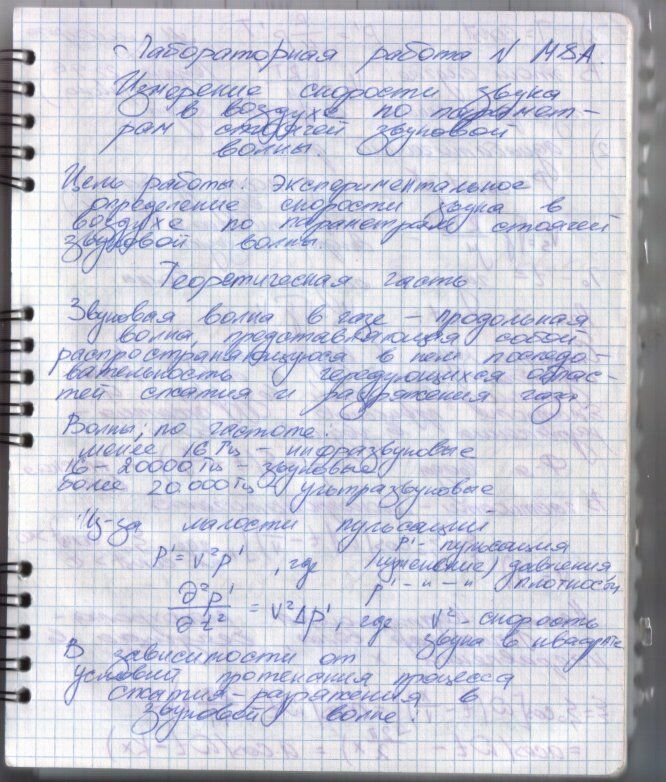 Лабораторная работа N М8А.
Измерение скорости звука
в воздухе по парамет-
рам стоячей звуковой
волны.
Цель работы: Экспериментальное
определение скорости звука в
воздухе по параметрам стоячей
звуковой волны
Теоретическая часть.
Звуковая волна в газе – продольная
волна, представляющая собой
распространяющуюся в нем последо-
вательность чередующихся облас-
тей сжатия и разряжения газа.
Волны, по частоте:
менее 16 Гц – инфразвуковые
16 – 20000 Гц – звуковые
более 20.000 Гц ультразвуковые
Из-за малости пульсаций
p' = v²ρ', где p' - пульсация
(изменение) давления
ρ' – " – " плотности
∂²p'/∂t² = v²Δp', где v² - скорость
звука в квадрате
В зависимости от
условий протекания процесса
сжатия-разряжения в
звуковой волне: